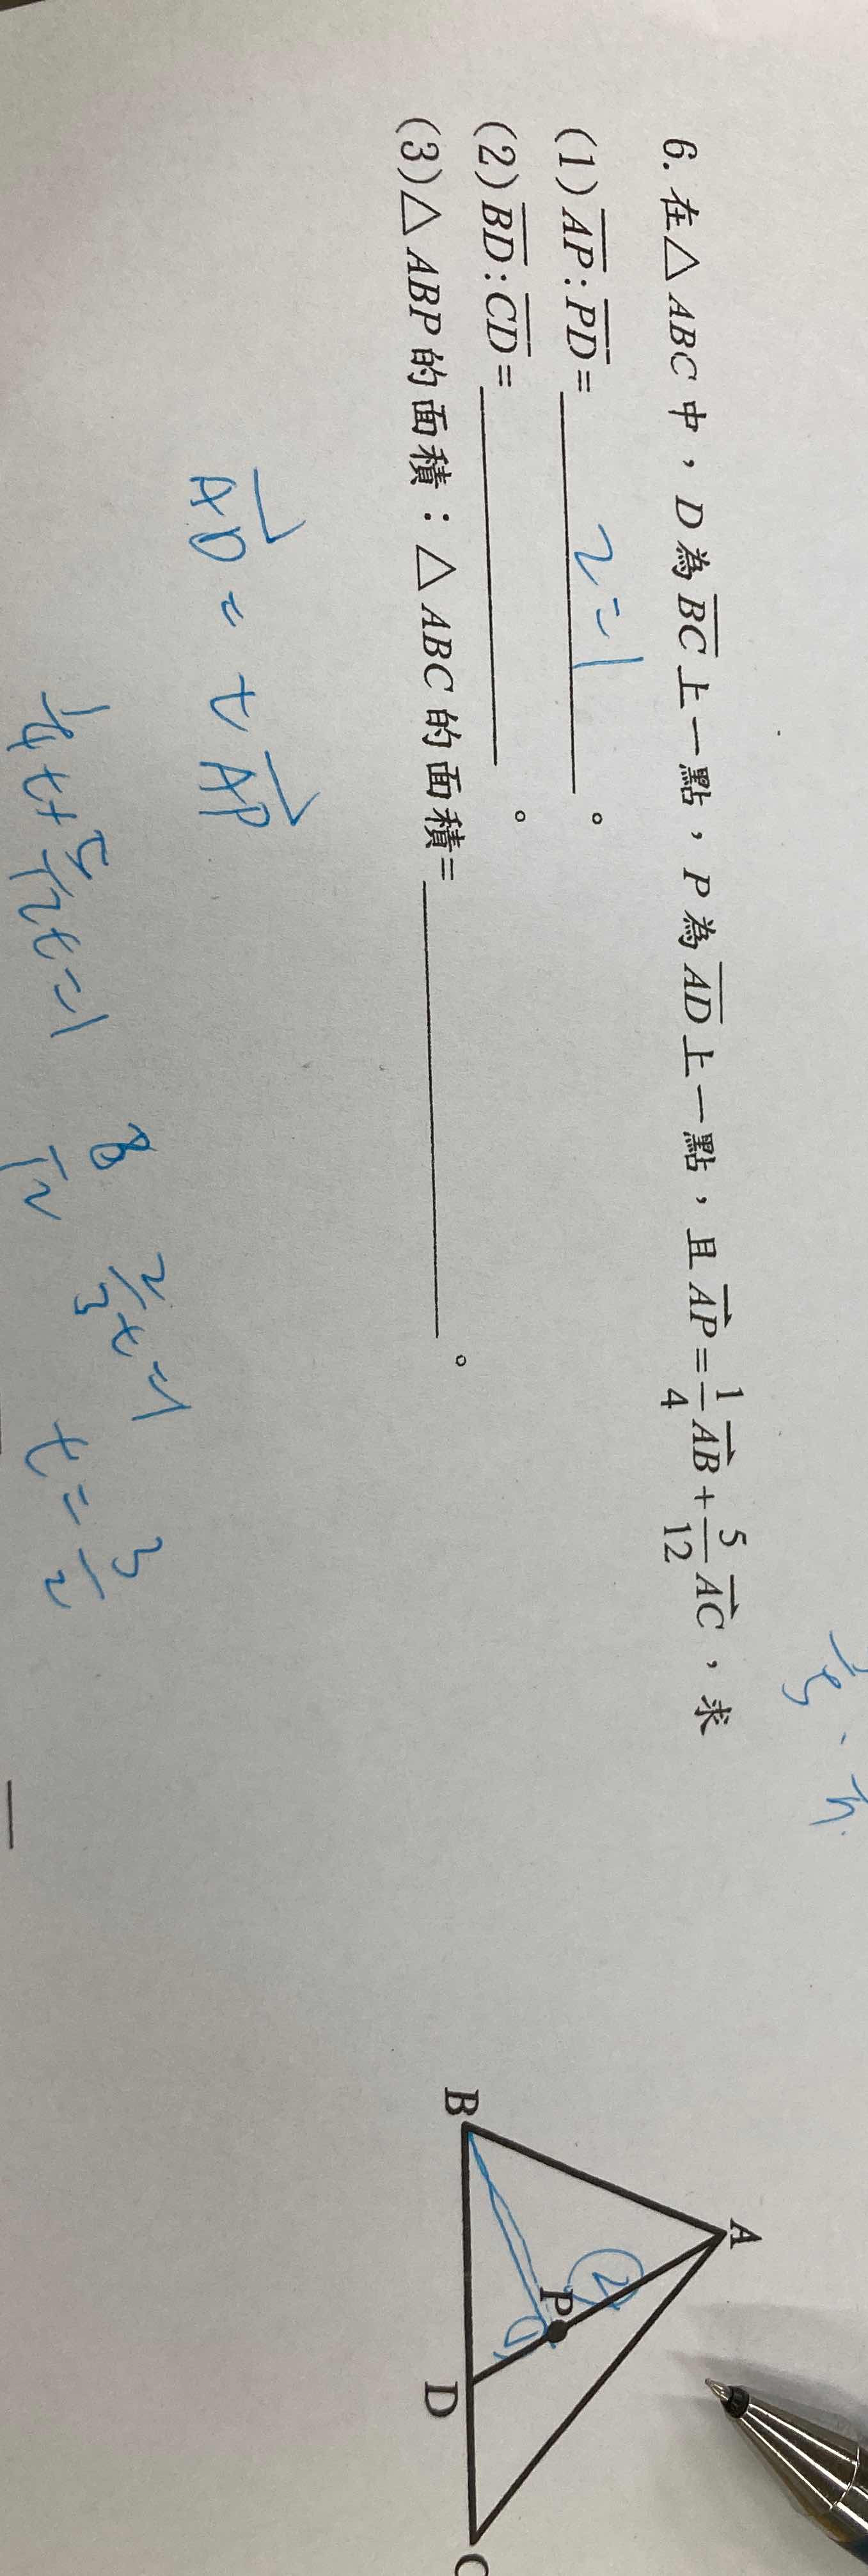 6. 在△ABC中，D為BC上一點，P為AD上一點，且AP=1/4AB+5/12AC，求
(1)AP:PD= 2=1 。
(2)BD:CD= 。
(3)△ABP的面積：△ABC的面積= 。
AD = t AP
1/4t+5/12t=1
8/12
2/3t=1
t=3/2
A
B
P
D
C
2
1